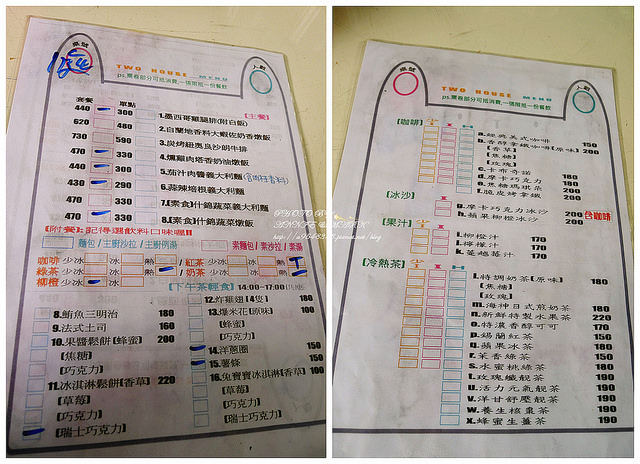 桌號
人數
TWO HOUSE MENU
ps.票卷部分可抵消費,一張限抵一份餐飲
套餐 單點 【主餐】
440 300 1.墨西哥雞腿排(附白飯)
620 480 2.白蘭地香料大蝦佐奶香燉飯
730 590 3.炭烤紐奧良沙朗牛排
470 330 4.燻雞肉塔香奶油燉飯
440 300 5.茄汁肉醬義大利麵
430 290 6.蒜辣培根義大利麵
470 330 7.(素食)什錦蔬菜義大利麵
470 330 8.(素食)什錦蔬菜燉飯
【附餐】:記得選飲料口味喔!!
麵包/主廚沙拉/主廚例湯 素麵包/素沙拉/素湯
咖啡 少冰 冰 熱 / 紅茶 少冰 冰 熱
綠茶 少冰 冰 熱 / 奶茶 少冰 冰 熱
柳橙 少冰 冰
【下午茶輕食】 14:00~17:00
8.鮪魚三明治 180
9.法式土司 160
10.果醬鬆餅(蜂蜜) 200
(焦糖)
(巧克力)
11.冰淇淋鬆餅(香草) 220
(草莓)
(巧克力)
(瑞士巧克力)
12.炸雞翅(4隻) 180
13.爆米花(原味) 100
(蜂蜜)
(巧克力)
14.洋蔥圈 150
15.薯條 150
16.兔寶寶冰淇淋(香草) 100
(草莓)
(巧克力)
(瑞士巧克力)
桌號
人數
TWO HOUSE MENU
ps.票卷部分可抵消費,一張限抵一份餐飲
【咖啡】
a.經典美式咖啡 150
b.香醇拿鐵咖啡(原味) 200
(香草)
(焦糖)
(玫瑰)
c.卡布奇諾
d.摩卡巧克力 180
e.焦糖瑪琪朵 200
f.脆皮烤拿鐵 200
【冰沙】
g.摩卡巧克力冰沙 200 含咖啡
h.蘋果柳橙冰沙 200
【果汁】
i.柳橙汁 170
j.檸檬汁 170
k.蔓越莓汁 170
【冷熱茶】
l.特調奶茶(原味) 180
(焦糖)
(玫瑰)
m.海神日式煎奶茶 180
n.新鮮特製水果茶 220
o.特濃香醇可可 170
p.錫蘭紅茶 150
q.蘋果冰茶 180
r.茉香綠茶 150
s.水蜜桃綠茶 180
t.玫瑰纖靚茶 190
u.活力元氣靚茶 190
v.洋甘舒壓靚茶 190
w.養生核棗茶 190
x.蜂蜜生薑茶 190